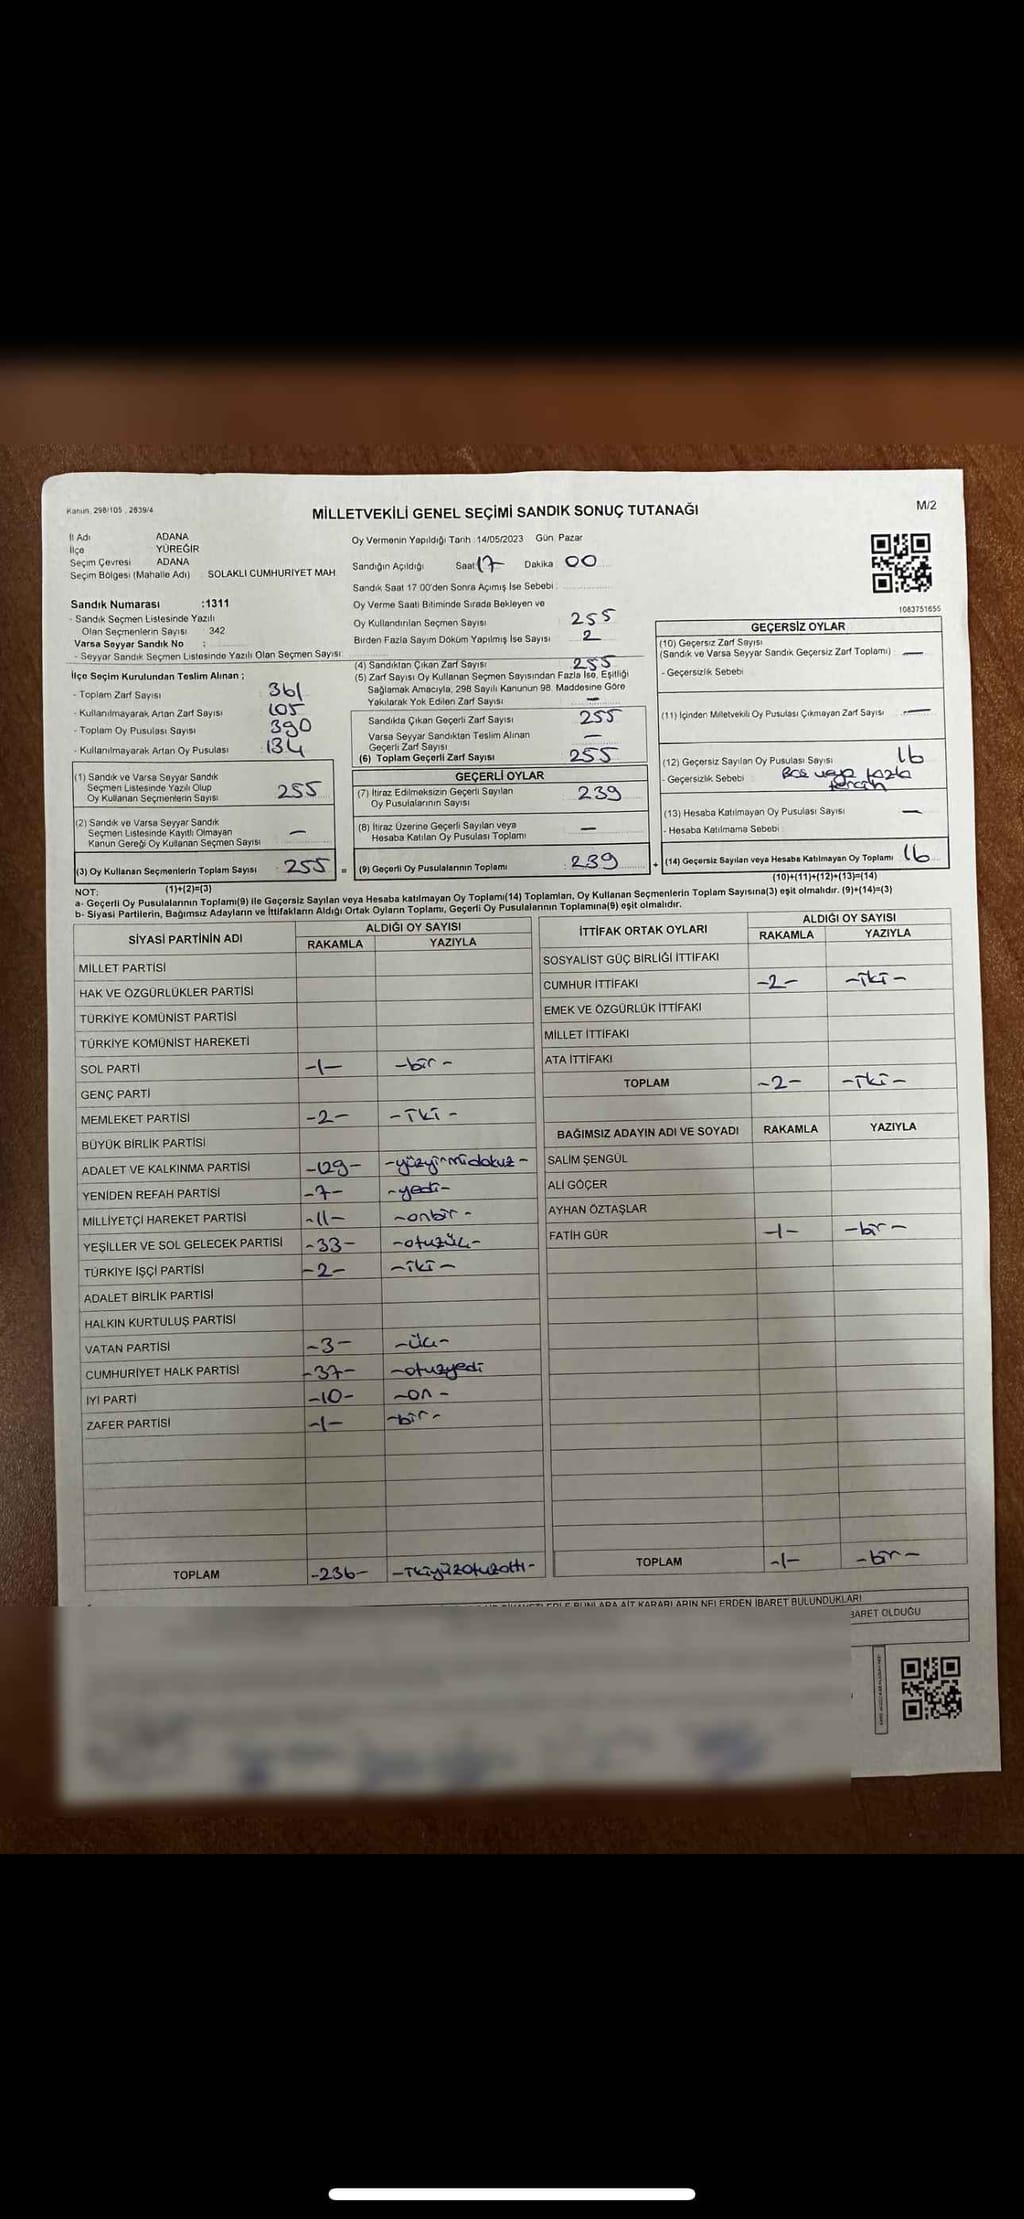 Kanun. 298/105 , 2839/4
MİLLETVEKİLİ GENEL SEÇİMİ SANDIK SONUÇ TUTANAĞI
M/2
İl Adı ADANA
İlçe YÜREĞİR
Seçim Çevresi ADANA
Seçim Bölgesi (Mahalle Adı) SOLAKLI CUMHURİYET MAH.
Sandık Numarası :1311
- Sandık Seçmen Listesinde Yazılı
Olan Seçmenlerin Sayısı : 342
Varsa Seyyar Sandık No :
- Seyyar Sandık Seçmen Listesinde Yazılı Olan Seçmen Sayısı:
İlçe Seçim Kurulundan Teslim Alınan ;
- Toplam Zarf Sayısı 361
- Kullanılmayarak Artan Zarf Sayısı 105
- Toplam Oy Pusulası Sayısı 390
- Kullanılmayarak Artan Oy Pusulası : 134
(1) Sandık ve Varsa Seyyar Sandık
Seçmen Listesinde Yazılı Olup
Oy Kullanan Seçmenlerin Sayısı 255
(2) Sandık ve Varsa Seyyar Sandık
Seçmen Listesinde Kayıtlı Olmayan
Kanun Gereği Oy Kullanan Seçmen Sayısı —
(3) Oy Kullanan Seçmenlerin Toplam Sayısı : 255 =
Oy Vermenin Yapıldığı Tarih : 14/05/2023 Gün : Pazar
Sandığın Açıldığı Saat 17 Dakika 00
Sandık Saat 17:00'den Sonra Açılmış İse Sebebi :
Oy Verme Saati Bitiminde Sırada Bekleyen ve
Oy Kullandırılan Seçmen Sayısı 255
Birden Fazla Sayım Döküm Yapılmış İse Sayısı 2
(4) Sandıktan Çıkan Zarf Sayısı 255
(5) Zarf Sayısı Oy Kullanan Seçmen Sayısından Fazla İse, Eşitliği
Sağlamak Amacıyla, 298 Sayılı Kanunun 98. Maddesine Göre
Yakılarak Yok Edilen Zarf Sayısı —
Sandıkta Çıkan Geçerli Zarf Sayısı 255
Varsa Seyyar Sandıktan Teslim Alınan
Geçerli Zarf Sayısı —
(6) Toplam Geçerli Zarf Sayısı 255
GEÇERLİ OYLAR
(7) İtiraz Edilmeksizin Geçerli Sayılan
Oy Pusulalarının Sayısı : 239
(8) İtiraz Üzerine Geçerli Sayılan veya
Hesaba Katılan Oy Pusulası Toplamı : —
(9) Geçerli Oy Pusulalarının Toplamı : 239 +
1083751655
GEÇERSİZ OYLAR
(10) Geçersiz Zarf Sayısı
(Sandık ve Varsa Seyyar Sandık Geçersiz Zarf Toplamı) : —
- Geçersizlik Sebebi
(11) İçinden Milletvekili Oy Pusulası Çıkmayan Zarf Sayısı : —
(12) Geçersiz Sayılan Oy Pusulası Sayısı 16
- Geçersizlik Sebebi : Boş veya fazla
tercih
(13) Hesaba Katılmayan Oy Pusulası Sayısı : —
- Hesaba Katılmama Sebebi
(14) Geçersiz Sayılan veya Hesaba Katılmayan Oy Toplamı : 16
(10)+(11)+(12)+(13)=(14)
NOT: (1)+(2)=(3)
a- Geçerli Oy Pusulalarının Toplamı(9) ile Geçersiz Sayılan veya Hesaba katılmayan Oy Toplamı(14) Toplamları, Oy Kullanan Seçmenlerin Toplam Sayısına(3) eşit olmalıdır. (9)+(14)=(3)
b- Siyasi Partilerin, Bağımsız Adayların ve İttifakların Aldığı Ortak Oyların Toplamı, Geçerli Oy Pusulalarının Toplamına(9) eşit olmalıdır.
SİYASİ PARTİNİN ADI ALDIĞI OY SAYISI
RAKAMLA YAZIYLA
MİLLET PARTİSİ
HAK VE ÖZGÜRLÜKLER PARTİSİ
TÜRKİYE KOMÜNİST PARTİSİ
TÜRKİYE KOMÜNİST HAREKETİ
SOL PARTİ -1- -bir-
GENÇ PARTİ
MEMLEKET PARTİSİ -2- -iki-
BÜYÜK BİRLİK PARTİSİ
ADALET VE KALKINMA PARTİSİ -129- -yüzyirmidokuz-
YENİDEN REFAH PARTİSİ -7- -yedi-
MİLLİYETÇİ HAREKET PARTİSİ -11- -onbir-
YEŞİLLER VE SOL GELECEK PARTİSİ -33- -otuzüç-
TÜRKİYE İŞÇİ PARTİSİ -2- -iki-
ADALET BİRLİK PARTİSİ
HALKIN KURTULUŞ PARTİSİ
VATAN PARTİSİ -3- -üç-
CUMHURİYET HALK PARTİSİ -37- -otuzyedi
İYİ PARTİ -10- -on-
ZAFER PARTİSİ -1- -bir-
TOPLAM -236- -ikiyüzotuzaltı-
İTTİFAK ORTAK OYLARI ALDIĞI OY SAYISI
RAKAMLA YAZIYLA
SOSYALİST GÜÇ BİRLİĞİ İTTİFAKI
CUMHUR İTTİFAKI -2- -iki-
EMEK VE ÖZGÜRLÜK İTTİFAKI
MİLLET İTTİFAKI
ATA İTTİFAKI
TOPLAM -2- -iki-
BAĞIMSIZ ADAYIN ADI VE SOYADI RAKAMLA YAZIYLA
SALİM ŞENGÜL
ALİ GÖÇER
AYHAN ÖZTAŞLAR
FATİH GÜR -1- -bir-
TOPLAM -1- -bir-
BUNLARA AİT KARARLARIN NELERDEN İBARET BULUNDUKLARI
BARET OLDUĞU